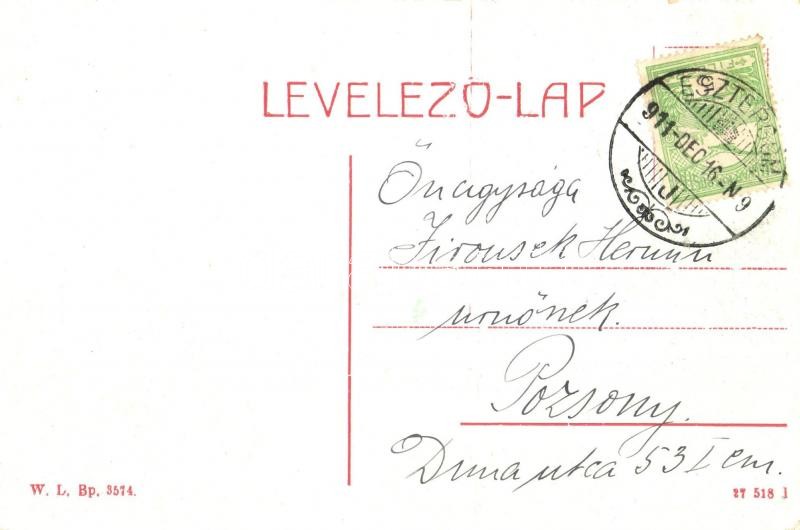 LEVELEZŐ-LAP
FIL
ESZTERGOM
911-DEC 16-N9
J
Őnagysága
Jirousek Hermin
urnőnek.
Pozsony.
Duna utca 53 I em.
W. L. Bp. 3574.
27 518 1